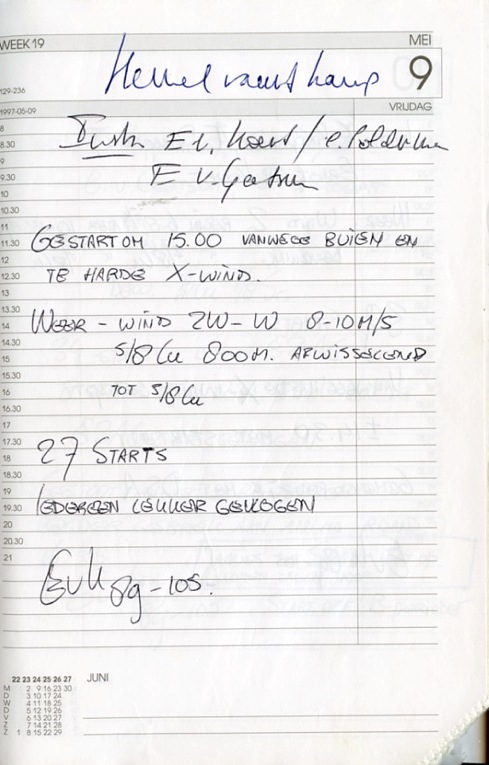 WEEK 19 MEI
129-236 Hemelvaartkamp 9
1997-05-09 VRIJDAG
8
8.30 E v.
9
9.30 E v.
10
10.30
11
11.30 GESTART OM 15.00 VANWEGE BUIEN EN
12
12.30 TE HARDE X-WIND.
13
13.30
14 WEER - WIND ZW-W 8-10 M/S
14.30
15 5/8 Cu 800M. AFWISSELEND
15.30
16 TOT 5/8 Cu
16.30
17
17.30
18 27 STARTS
18.30
19
19.30 IEDEREEN LEKKER GEVLOGEN
20
20.30
21
JUNI
22 23 24 25 26 27
M 2 9 16 23 30
D 3 10 17 24
W 4 11 18 25
D 5 12 19 26
V 6 13 20 27
Z 7 14 21 28
Z 1 8 15 22 29